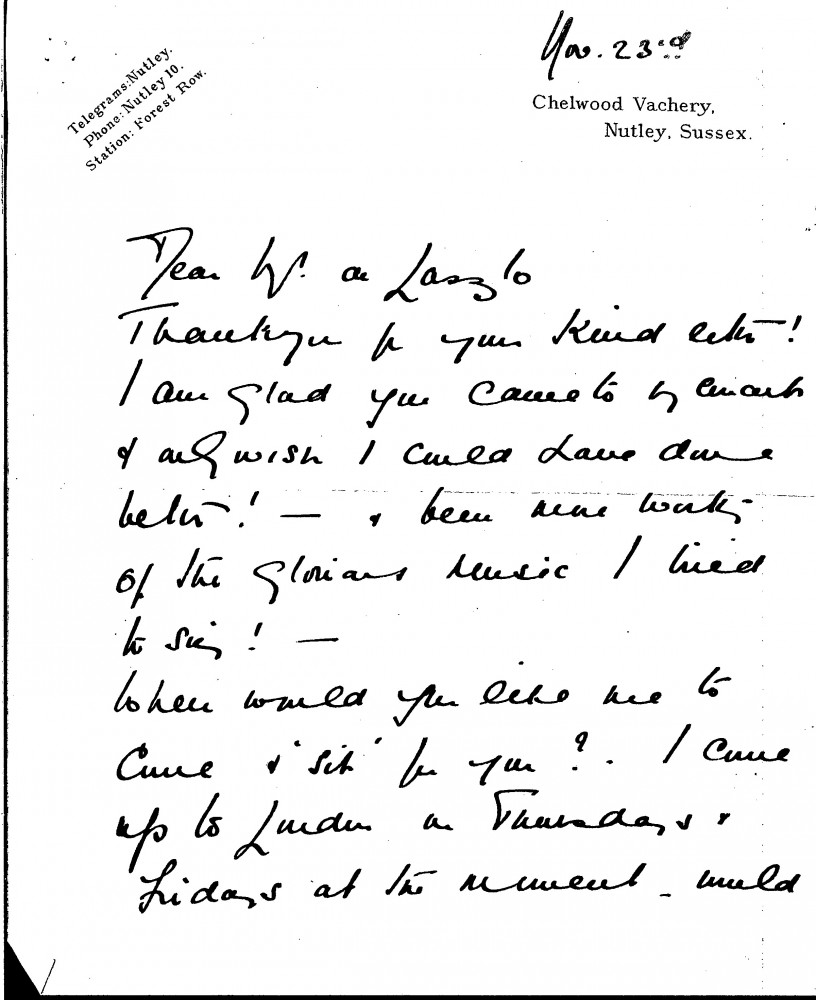 Nov. 23rd
Telegrams: Nutley.
Phone: Nutley 10.
Station: Forest Row.
Chelwood Vachery,
Nutley, Sussex.
Dear Mr. de Laszlo
Thankyou for your kind letter!
I am glad you came to my concert
& only wish I could have done
better! — & been more worthy
of the glorious music I tried
to sing! —
When would you like me to
come & 'sit' for you?. I come
up to London on Thursdays &
Fridays at the moment - would